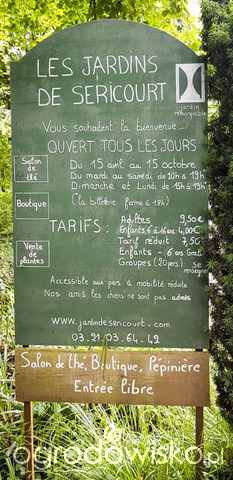 LES JARDINS
DE SERICOURT
jardin
remarquable
Vous souhaitent la bienvenue...
OUVERT TOUS LES JOURS
Du 15 avril au 15 octobre
Du mardi au samedi de 10h à 19h
Dimanche et Lundi de 15h à 19h
(La billetterie ferme à 18h)
Salon
de thé
Boutique
Vente
de
plantes
TARIFS :
Adultes 9,50€
Enfants, 6 à 16 ans 4,00€
Tarif réduit 7,50
Enfants - 6 ans Grati
Groupes (20 pers) : se
renseigner
Accessible aux pers. à mobilité réduite
Nos amis les chiens ne sont pas admis
www.jardindesericourt.com
03.21.03.64.42
Salon de thé, Boutique, Pépinière
Entrée libre
ogrodowisko.pl